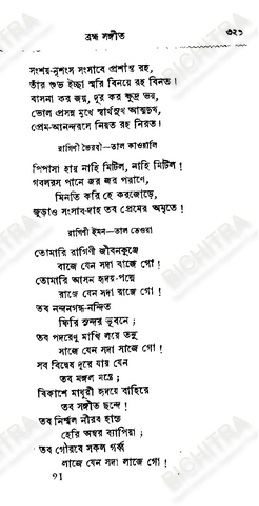 ব্রহ্ম সঙ্গীত ৩২১
সংশয়-নৃশংস সংসাবে প্রশান্ত রহ,
তাঁর শুভ ইচ্ছা স্মরি বিনয়ে রহ বিনত।
বাসনা কর জয়, দূর কর ক্ষুদ্র ভয়,
ভোল প্রসন্ন মুখে স্বার্থসুখ আত্মদুখ,
প্রেম-আনন্দরসে নিয়ত রহ নিরত।
রাগিণী ভৈরবী—তাল কাওয়ালি
পিপাসা হায় নাহি মিটিল, নাহি মিটিল!
গরলরস পানে জর জর পরাণে,
মিনতি করি হে করজোড়ে,
জুড়াও সংসার-দাহ তব প্রেমের অমৃতে!
রাগিণী ইমন—তাল তেওয়া
তোমারি রাগিণী জীবনকুঞ্জে
বাজে যেন সদা বাজে গো!
তোমারি আসন হৃদয়-পদ্মে
রাজে যেন সদা রাজে গো!
তব নন্দনগন্ধ-নন্দিত
ফিরি সুন্দর ভুবনে;
তব পদরেণু মাখি লয়ে তনু
সাজে যেন সদা সাজে গো!
সব বিদ্বেষ দূরে যায় যেন
তব মঙ্গল মন্ত্রে;
বিকাশে মাধুরী হৃদয়ে বাহিরে
তব সঙ্গীত ছন্দে!
তব নির্ম্মল নীরব হাস্য
হেরি অম্বর ব্যাপিয়া;
তব গৌরবে সকল গর্ব্ব
লাজে যেন সদা লাজে গো!
91
BICHITRA